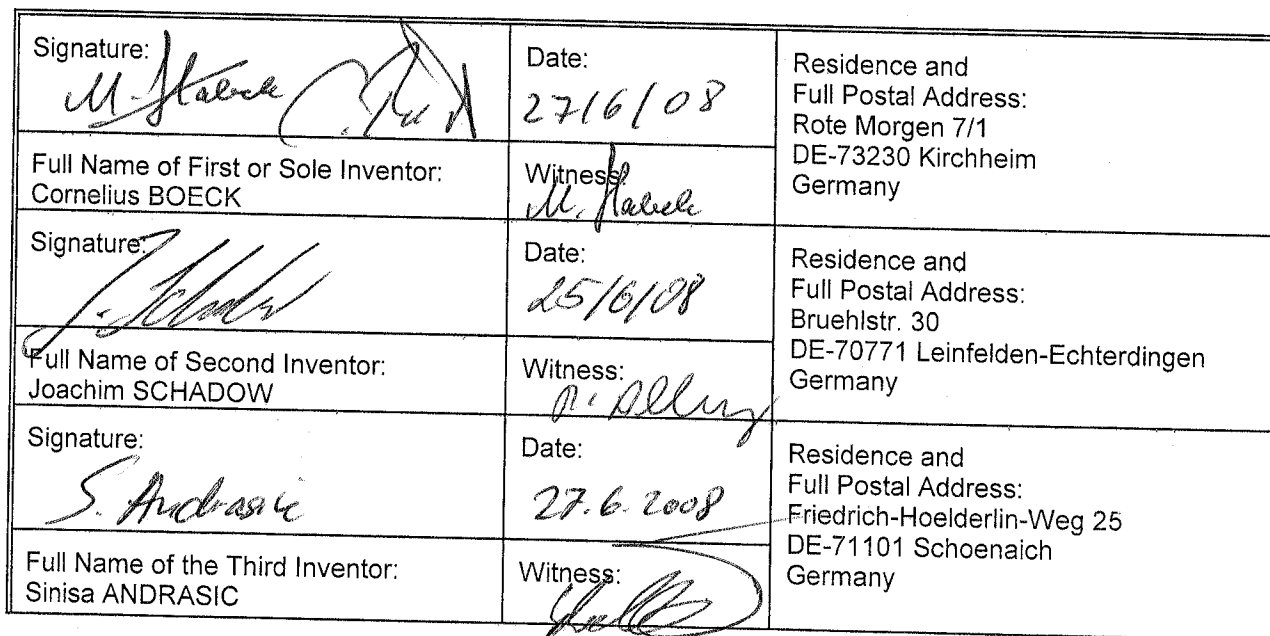 Signature:
Date:
27/6/08
Residence and
Full Postal Address:
Rote Morgen 7/1
DE-73230 Kirchheim
Germany
Full Name of First or Sole Inventor:
Cornelius BOECK
Witness:
Signature:
J. Schadow
Date:
25/6/08
Residence and
Full Postal Address:
Bruehlstr. 30
DE-70771 Leinfelden-Echterdingen
Germany
Full Name of Second Inventor:
Joachim SCHADOW
Witness:
Signature:
S. Andrasic
Date:
27.6.2008
Residence and
Full Postal Address:
Friedrich-Hoelderlin-Weg 25
DE-71101 Schoenaich
Germany
Full Name of the Third Inventor:
Sinisa ANDRASIC
Witness: